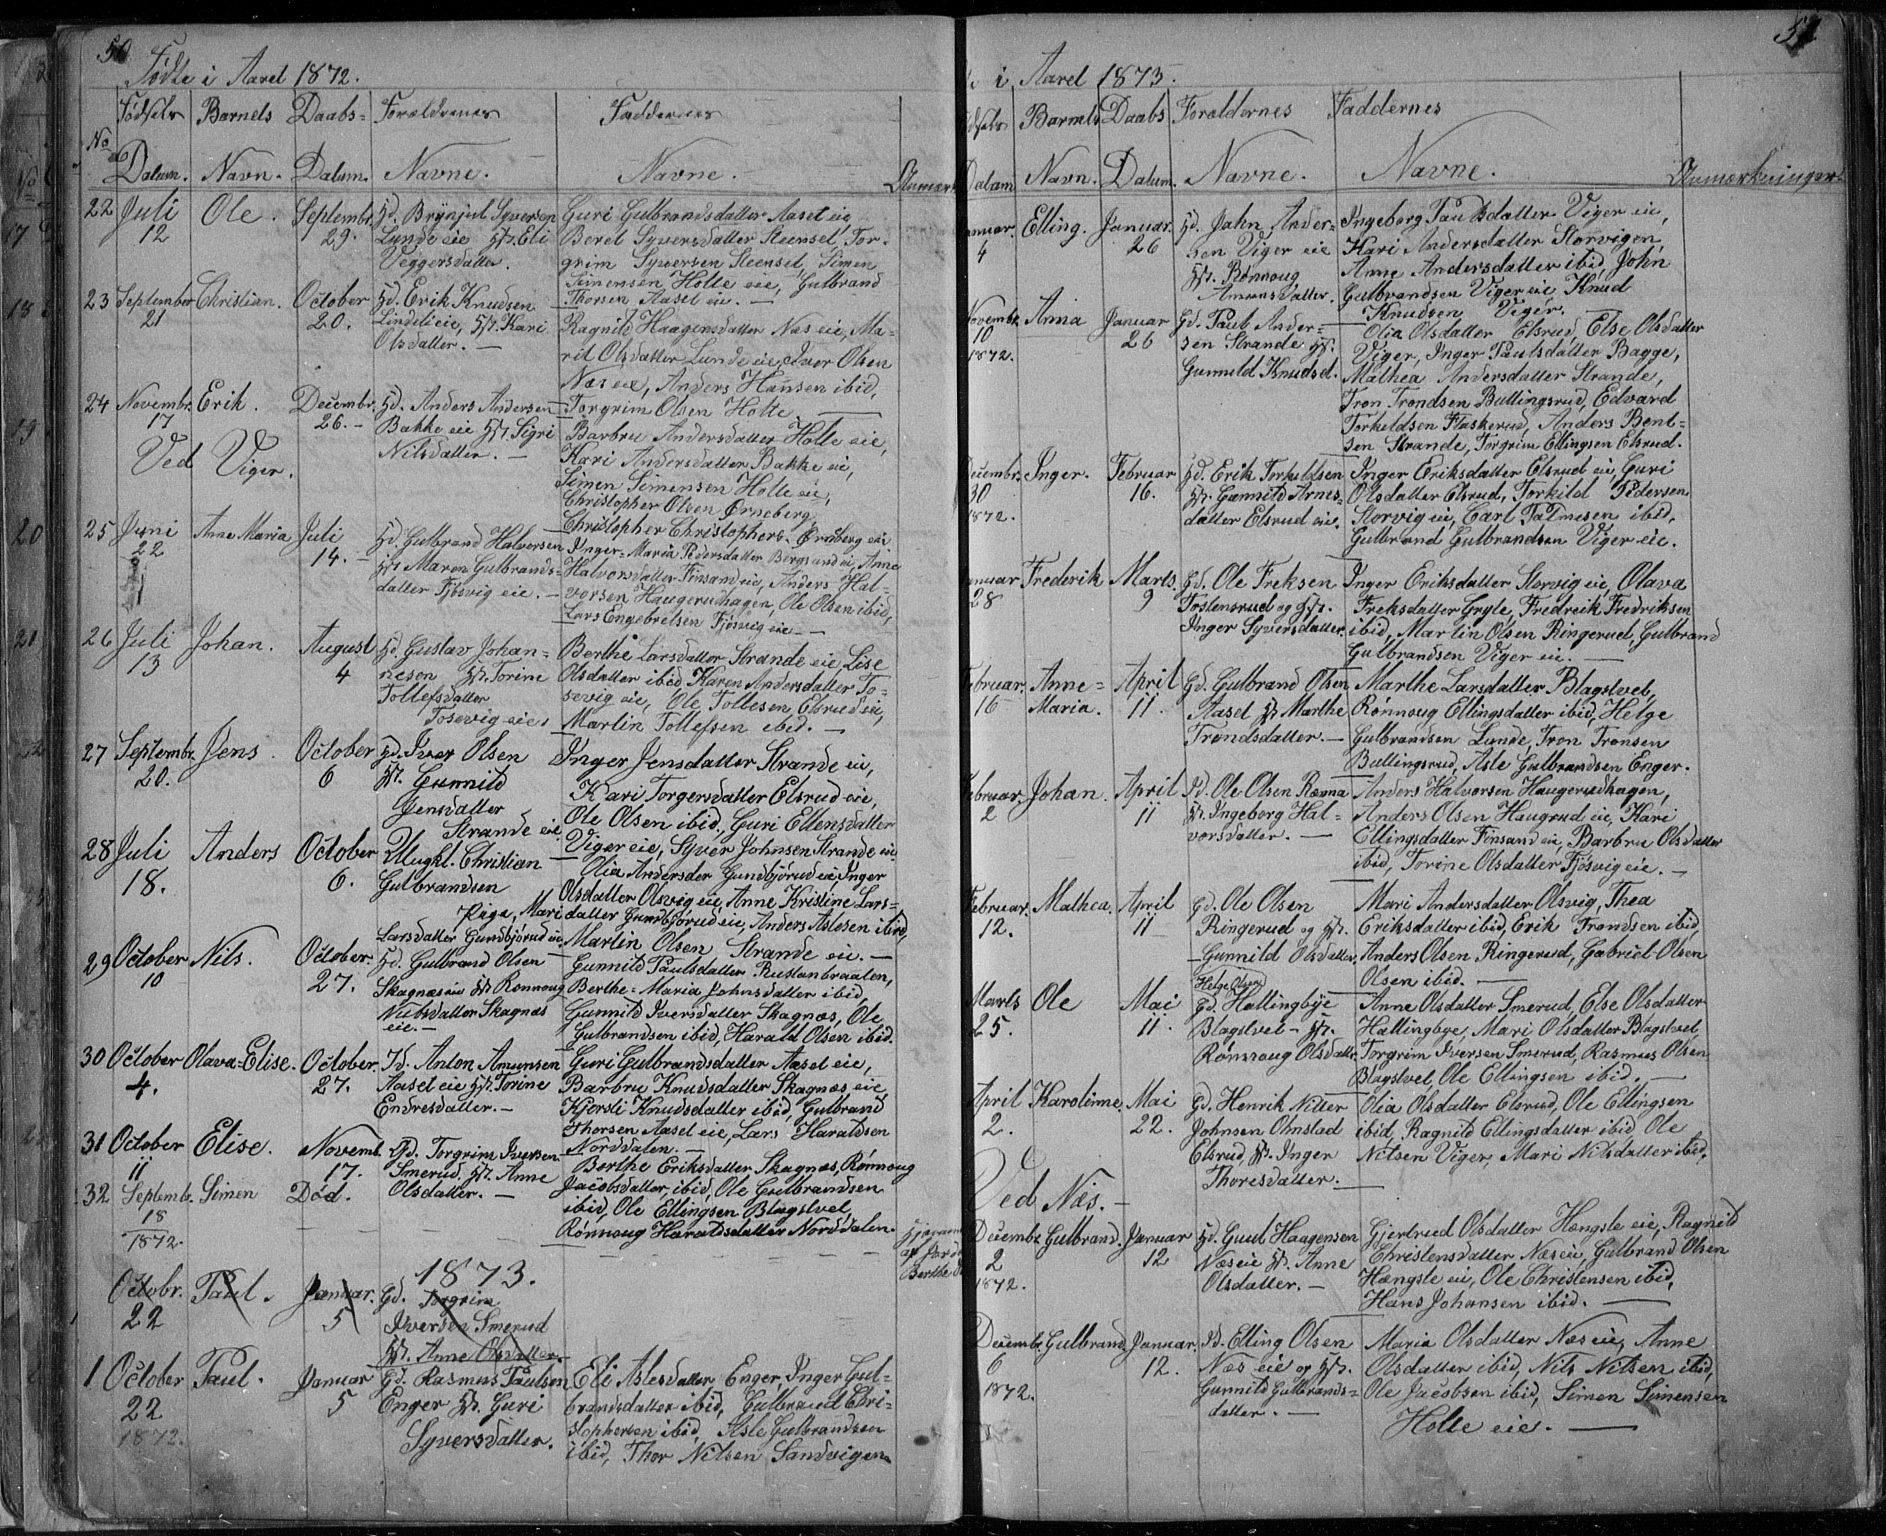 50
Fødte i Aaret 1872.
No Fødsels Datum. Barnets Navn. Daabs= Datum. Forældrenes Navne. Faddernes Navne. Anmærk
22 Juli 12 Ole. Septembr. 29. Gd. Brynjul Syversen
Lunde eie Hst. Eli
Veggersdatter.
Guri Gulbrandsdatter Aaset eie,
Beret Syversdatter Steenset, Tor-
grim Syversen Steenset, Simen
Simensen Holte eie, Gulbrand
Thorsen Aaset eie. —
23 September 21 Christian. October 20. Gd. Erik Knudsen
Lindelieie, Hst. Kari
Olsdatter. —
Ragnild Haagensdatter Næs eie, Ma-
rit Olsdatter Lunde eie, Iver Olsen
Næs eie, Anders Hansen ibid,
Torgrim Olsen Holte.
24 Novembr. 17 Erik. Decembr. 26. — Gd. Anders Andersen
Bakke eie Hst. Sigri
Nilsdatter. —
Barbru Andersdatter Holte eie,
Kari Andersdatter Bakke eie,
Simen Simensen Holte eie,
Christopher Olsen Ørneberg,
Christopher Christophers. Ørneberg eie
Ved Viger.
25 Juni 22 Anne Maria Juli 14. — Gd. Gulbrand Halvorsen
Hst. Maren Gulbrands-
datter Fjøsvig eie. —
Inger=Maria Pedersdatter Bergsund eie, Anne
Halvorsdatter Finsand eie, Anders Hal-
vorsen Haugerudhagen, Ole Olsen ibid,
Lars Engebretsen Fjøsvig eie —
26 Juli 13 Johan. August 4 Gd. Gustav Johan=
nesen Hst. Torine
Tollefsdatter
Tosevig eie,
Berthe Larsdatter Strande eie, Lise
Olsdatter ibid, Karen Andersdatter To=
sevig eie, Ole Tollesen Elsrud eie,
Martin Tollefsen ibid. —
27 Septembr. 20. Jens. October 6 Gd. Iver Olsen
Hst. Gunnild
Jensdatter
Strande eie
Inger Jensdatter Strande eie,
Kari Torgersdatter Elsrud eie,
Ole Olsen ibid, Guri Ellensdatter
Viger eie, Syver Johnsen Strande eie
28 Juli 18. Anders October 6. Ungkl. Christian
Gulbrandsen
Pige, Mari
Larsdatter Gundbjørud eie
Olia Andersdtr Gundbjørud eie, Inger
Olsdatter Olsvig eie, Anne Kristine Lars=
datter Gundbjørud eie, Anders Aslesen ibid,
Martin Olsen Strande eie. —
29 October 10 Nils. October. 27. Gd. Gulbrand Olsen
Skagnæs eie Hst Rønnoug
Nubsdatter Skagnæs
eie. —
Gunnild Paulsdatter Rustanbraaten,
Berthe=Maria Johnsdatter ibid,
Gunnild Iversdatter Skagnæs, Ole
Gulbrandsen ibid, Harald Olsen ibid.
30 October 4. Olava-Elise. October. 27. Id. Anton Amunsen
Aaset eie Hst. Torine
Endresdatter. —
Guri Gulbrandsdatter Aaset eie,
Barbru Knudsdatter Skagnæs eie
Kjersti Knudsdatter ibid, Gulbrand
Thorsen Aaset eie, Lars Haraldsen
Norddalen. —
31 October 11 Elise. Novemb. 17. Gd. Torgrim Iversen
Smerud Hst. Anne
Olsdatter. —
Berthe Eriksdatter Skagnæs, Rønnoug
Jacobsdatter, ibid, Ole Gulbrandsen
ibid, Ole Ellingsen Blagstvet,
Rønnoug Haraldsdatter Norddalen.
32 Septemb. 18 1872 Simen Død.
1873.
Octobr. 22 Paul. Januar. 5 Gd. Torgrim
Iversen Smerud
Hst. Anne Olsdatter
1 October 22 1872. Paul. Januar 5 Gd. Rasmus Paulsen
Enger Hst. Guri
Syversdatter.
Eli Aslesdatter Enger, Inger Gul-
brandsdatter ibid, Gulbrand Chri-
stophersen ibid, Asle Gulbrandsen
ibid, Thor Nilsen Sandvigen
51
i Aaret 1873.
Datum Barnets Navn. Daabs Datum. Forældernes Navne. Faddernes Navne. Anmærkninger.
4 Elling. Januar. 26 Gd. John Ander=
sen Viger eie
Hst. Rønnoug
Amunsdatter.
Ingeborg Paulsdatter Viger eie,
Kari Andersdatter Storvigen,
Anne Andersdatter ibid, John
Gulbrandsen Viger eie Knud
Knudsen Viger.
Novembr. 10 1872. Anna Januar 26 Gd. Paul Ander=
sen Strande Hst.
Gunnild Knudsd.
Olia Olsdatter Elsrud, Else Olsdatter
Viger, Inger Paulsdatter Bagge,
Mathea Andersdatter Strande,
Tron Trondsen Bullingsrud, Edvard
Torkildsen Flaskerud, Anders Bent=
sen Strande, Torgrim Ellingsen Elsrud.
Decembr. 30 1872. Inger. Februar 16. Gd. Erik Torkildsen
Hst. Gunnild Arnes=
datter Elsrud eie.
Inger Eriksdatter Elsrud eie, Guri
Olsdatter Elsrud, Torkild Pedersen
Storvig eie, Carl Palmesen ibid,
Gulbrand Gulbrandsen Viger eie.
Januar 28 Frederik Marts. 9 Gd. Ole Freksen
Tostensrud og Hst.
Inger Syversdatter.
Inger Eriksdatter Storvig eie, Olava
Freksdatter Gryte, Fredreik Fredriksen
ibid, Martin Olsen Ringerud, Gulbrand
Gulbrandsen Viger eie. —
Februar. 16 Anne=
Maria. April 11. Gd. Gulbrand Olsen
Aaset Hst Marthe
Trondsdatter. —
Marthe Larsdatter Blagstvet,
Rønnoug Ellingsdatter ibid, Helge
Gulbrandsen Lunde, Tron Tronsen
Bullingsrud, Asle Gulbrandsen Enger.
Februar. 2 Johan. April 11 Id. Ole Olsen Rævna
Hst. Ingeborg Hal-
vorsdatter. —
Anders Halvorsen Haugerudhagen,
Anders Olsen Haugrud eie, Kari
Ellingsdatter Finsand eie, Barbru Olsdatter
ibid, Torine Olsdatter Fjøsvig eie. —
Februar. 12. Mathea. April 11 Gd. Ole Olsen
Ringerud og Hst.
Gunnild Olsdatter.
Mari Andersdatter Olsvig, Thea
Eriksdatter ibid, Erik Trondsen ibid,
Anders Olsen Ringerud, Gabriel Olsen
Olsen ibid. —
Marts 25. Ole Mai 11. Helge Olsen
Gd. Hallingbye
Blagstvet — Hst.
Rønnoug Olsdatter
Anne Olsdatter Smerud, Else Olsdatter
Hallingbye, Mari Olsdatter Blagstvet,
Torgrim Iversen Smerud, Rasmus Olsen
Blagstvet, Ole Ellingsen ibid. —
April 2. Karolinne. Mai 22. Gd. Henrik Nitter
Johnsen Omstad
Elsrud, Hst. Inger
Thoresdatter. —
Olia Olsdatter Elsrud, Ole Ellingsen
ibid, Ragnild Ellingsdatter ibid Ole
Nilsen Viger, Mari Nilsdatter ibid.
Ved Næs. —
Decembr. 2 1872. Gulbrand. Januar 12 Gd. Gud Haagensen
Næs eie Hst. Anne
Olsdatter. —
Gjertrud Olsdatter Hængsle eie, Ragnild
Christensdatter Næs eie, Gulbrand Olsen
Hængsle eie, Ole Christensen ibid,
Hans Johansen ibid. —
Decembr. 6 1872. Gulbrand Januar. 12. Id. Elling Olsen
Næs eie og Hst.
Gunnild Gulbrands=
datter. —
Maria Olsdatter Næs eie, Anne
Olsdatter ibid, Nils Nilsen ibid,
Ole Jacobsen ibid, Simen Simensen
Holte eie. —